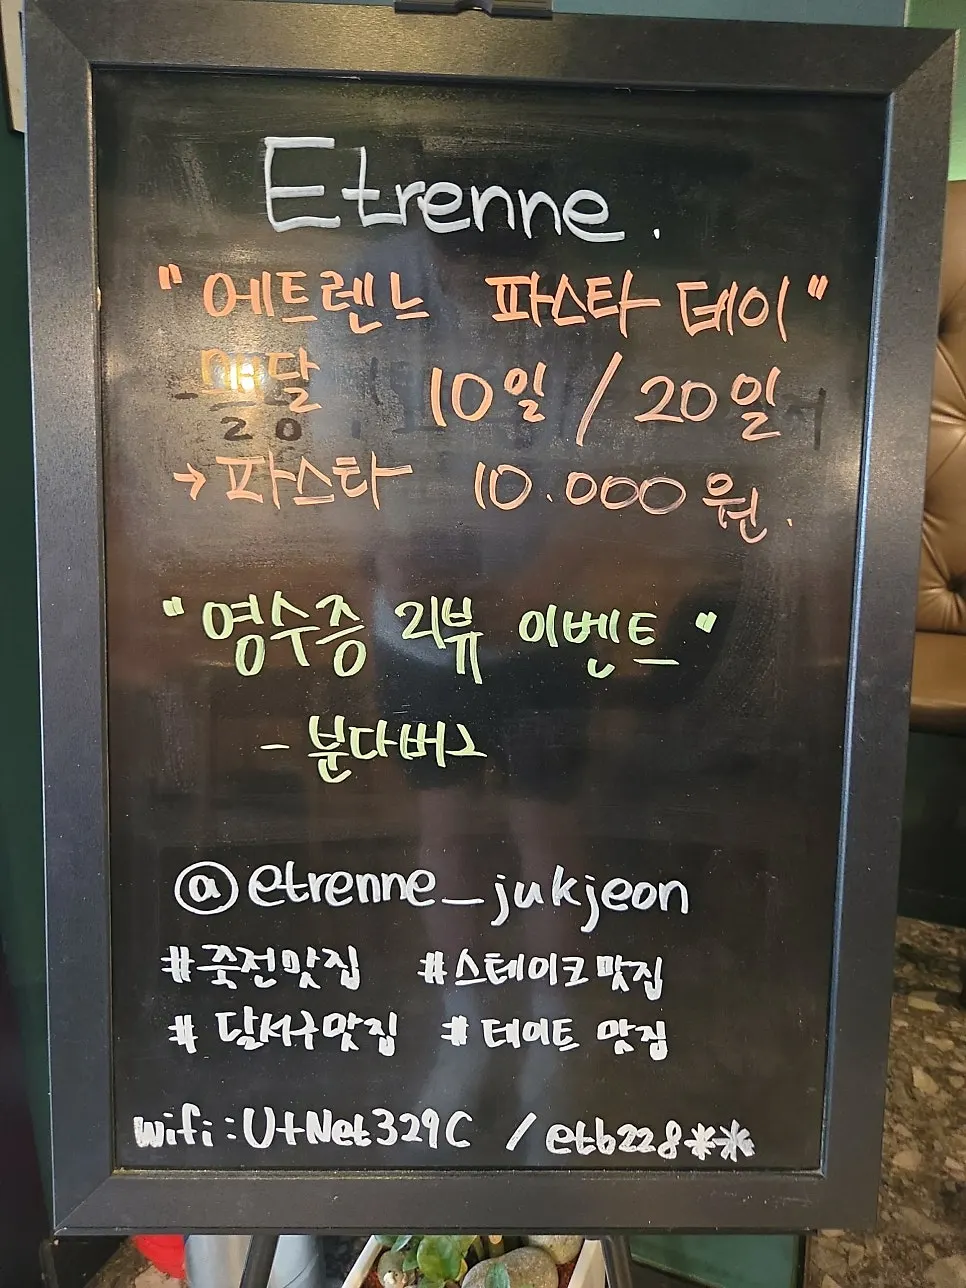 Etrenne.
"에트렌느 파스타 데이"
매달 10일 / 20일
→ 파스타 10.000원.
"영수증 리뷰 이벤트"
- 분다버그
@etrenne_jukjeon
#죽전맛집 #스테이크맛집
#달서구맛집 #데이트 맛집
wifi : U+Net329C / etb228**